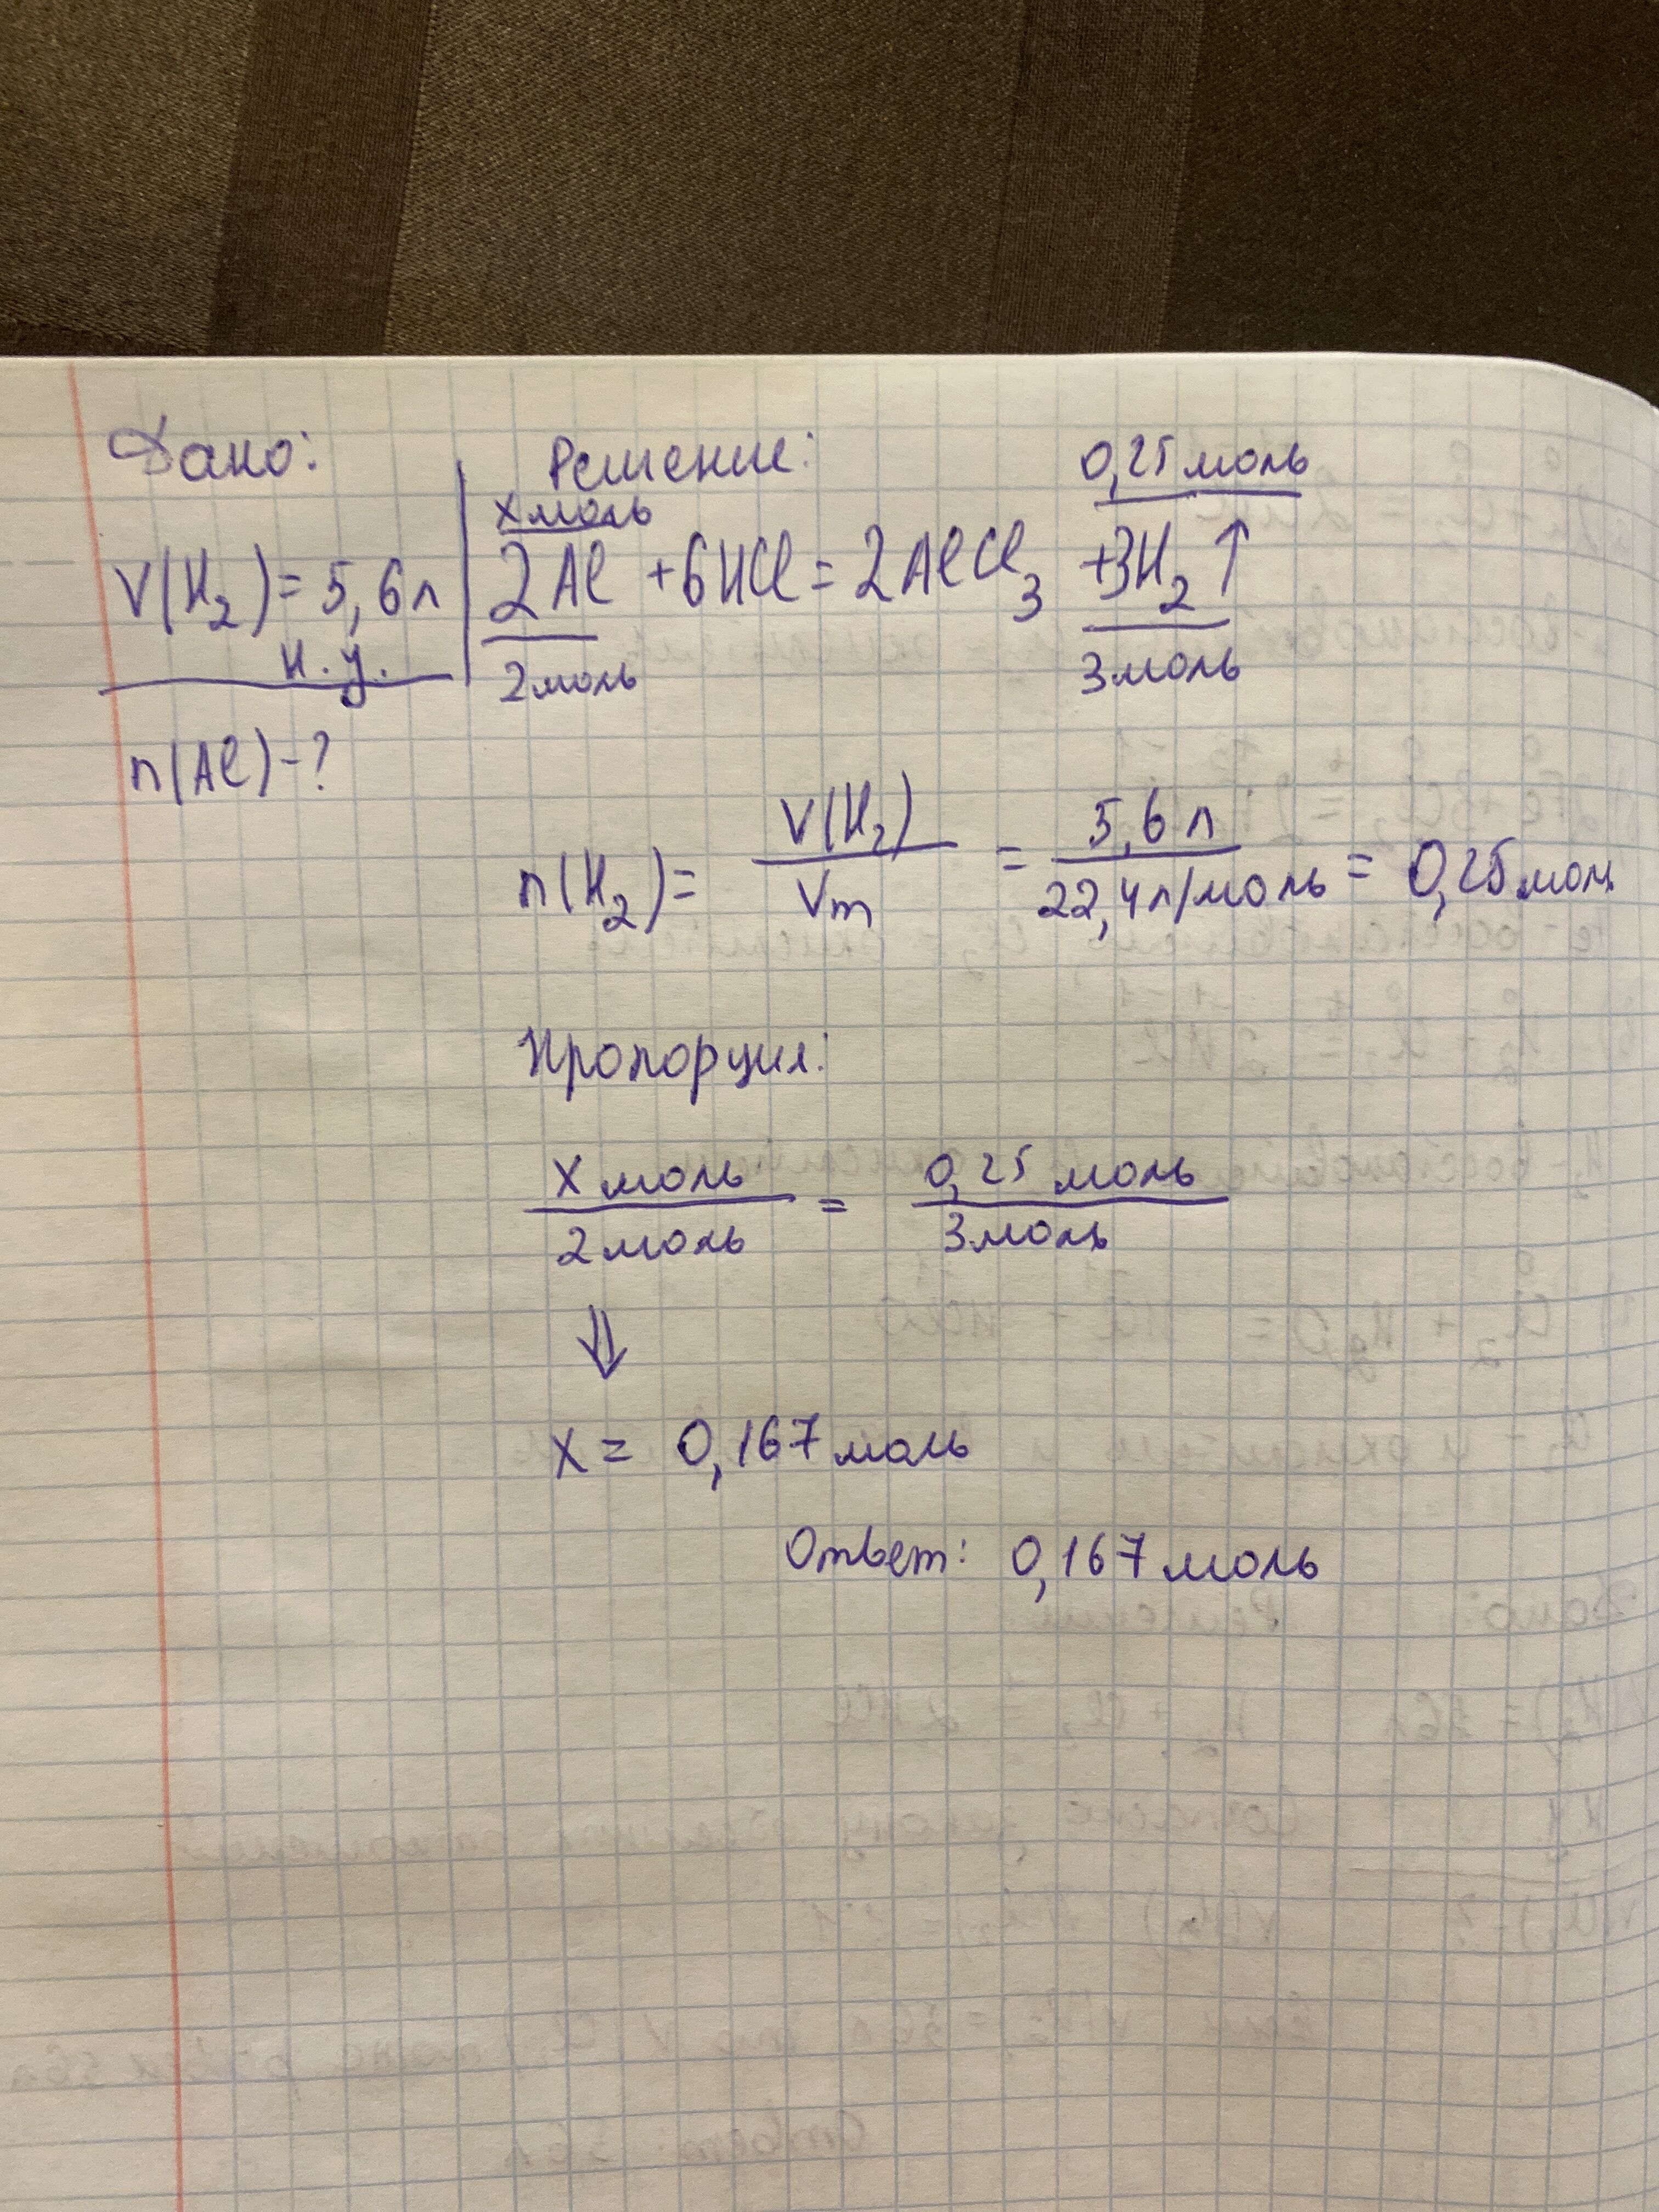 Дано:
V(H₂) = 5,6 л
н.у.
n(Al) - ?
Решение:
x моль 0,25 моль
2Al + 6HCl = 2AlCl₃ + 3H₂↑
2 моль 3 моль
n(H₂) = V(H₂) / Vm = 5,6 л / 22,4 л/моль = 0,25 моль
Пропорция:
x моль / 2 моль = 0,25 моль / 3 моль
⇓
x = 0,167 моль
Ответ: 0,167 моль